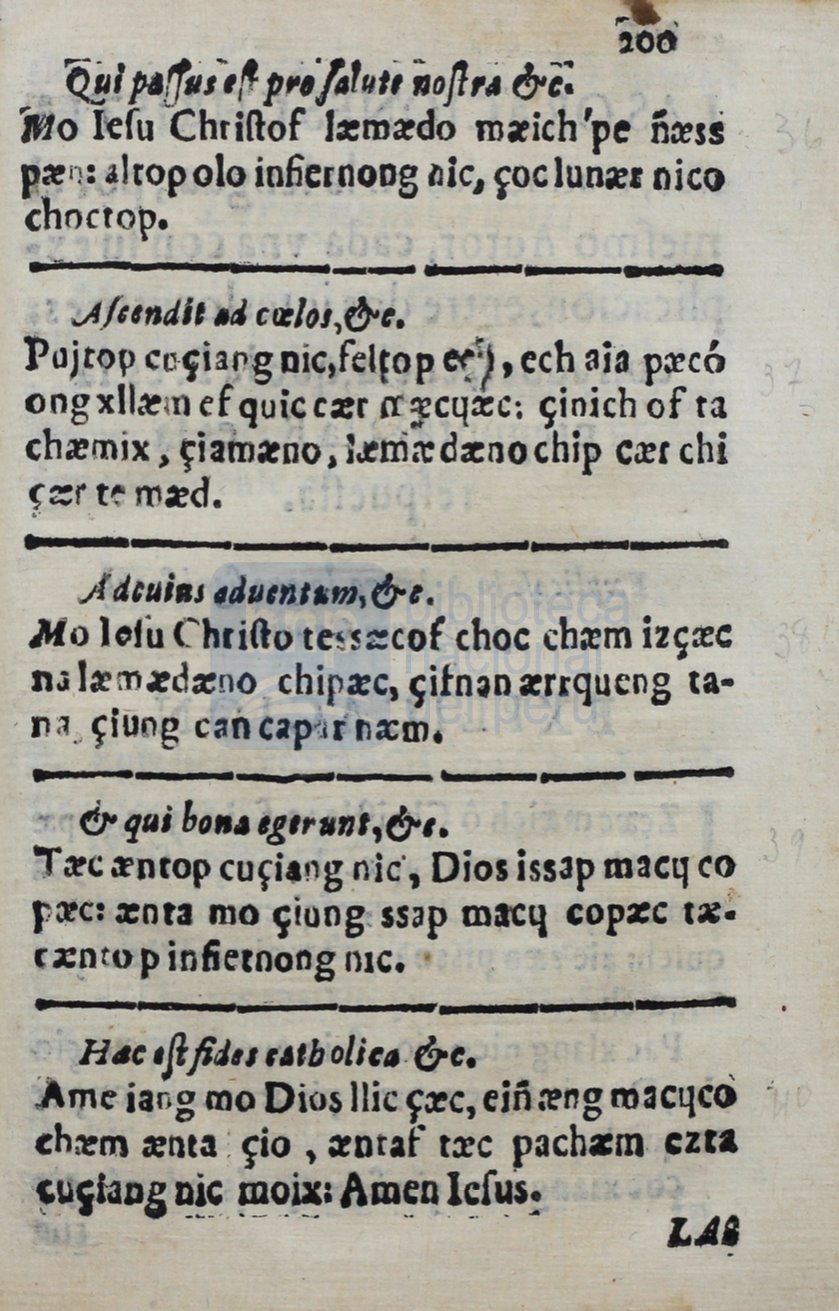 200
Qui paſſus eſt pro ſalute noſtra &c.
Mo Ieſu Chriſtof læmædo mæich'pe ñæss
pæn: altop olo infiernong nic, çoc lunær nico
choctop.
Aſcendit ad cœlos, &c.
Pujtop cuçiang nic, feltop , ech aia pæcó
ong xllæm ef quic cær : çinich of ta
chæmix, çiamæno, læmædæno chip cær chi
çær te mæd.
Ad cuius aduentum, &c.
Mo Ieſu Chriſto tessæcof choc chæm izçæc
na læmædæno chipæc, çiſnan ærrqueng ta-
na çiung can capær næm.
& qui bona egerunt, &c.
Tæc æntop cuçiang nic, Dios issap macɥ co
pæc: ænta mo çiung ssap macɥ copæc tæ-
cæntop infiernong nic.
Hæc eſt fides catholica &c.
Ame iang mo Dios llic çæc, eiñæng macɥcò
chæm ænta çio, æntaf tæc pachæm ezta
cuçiang nic moix: Amen Ieſus.
LAS
36
37
38
39
40
biblioteca
nacional
del perú